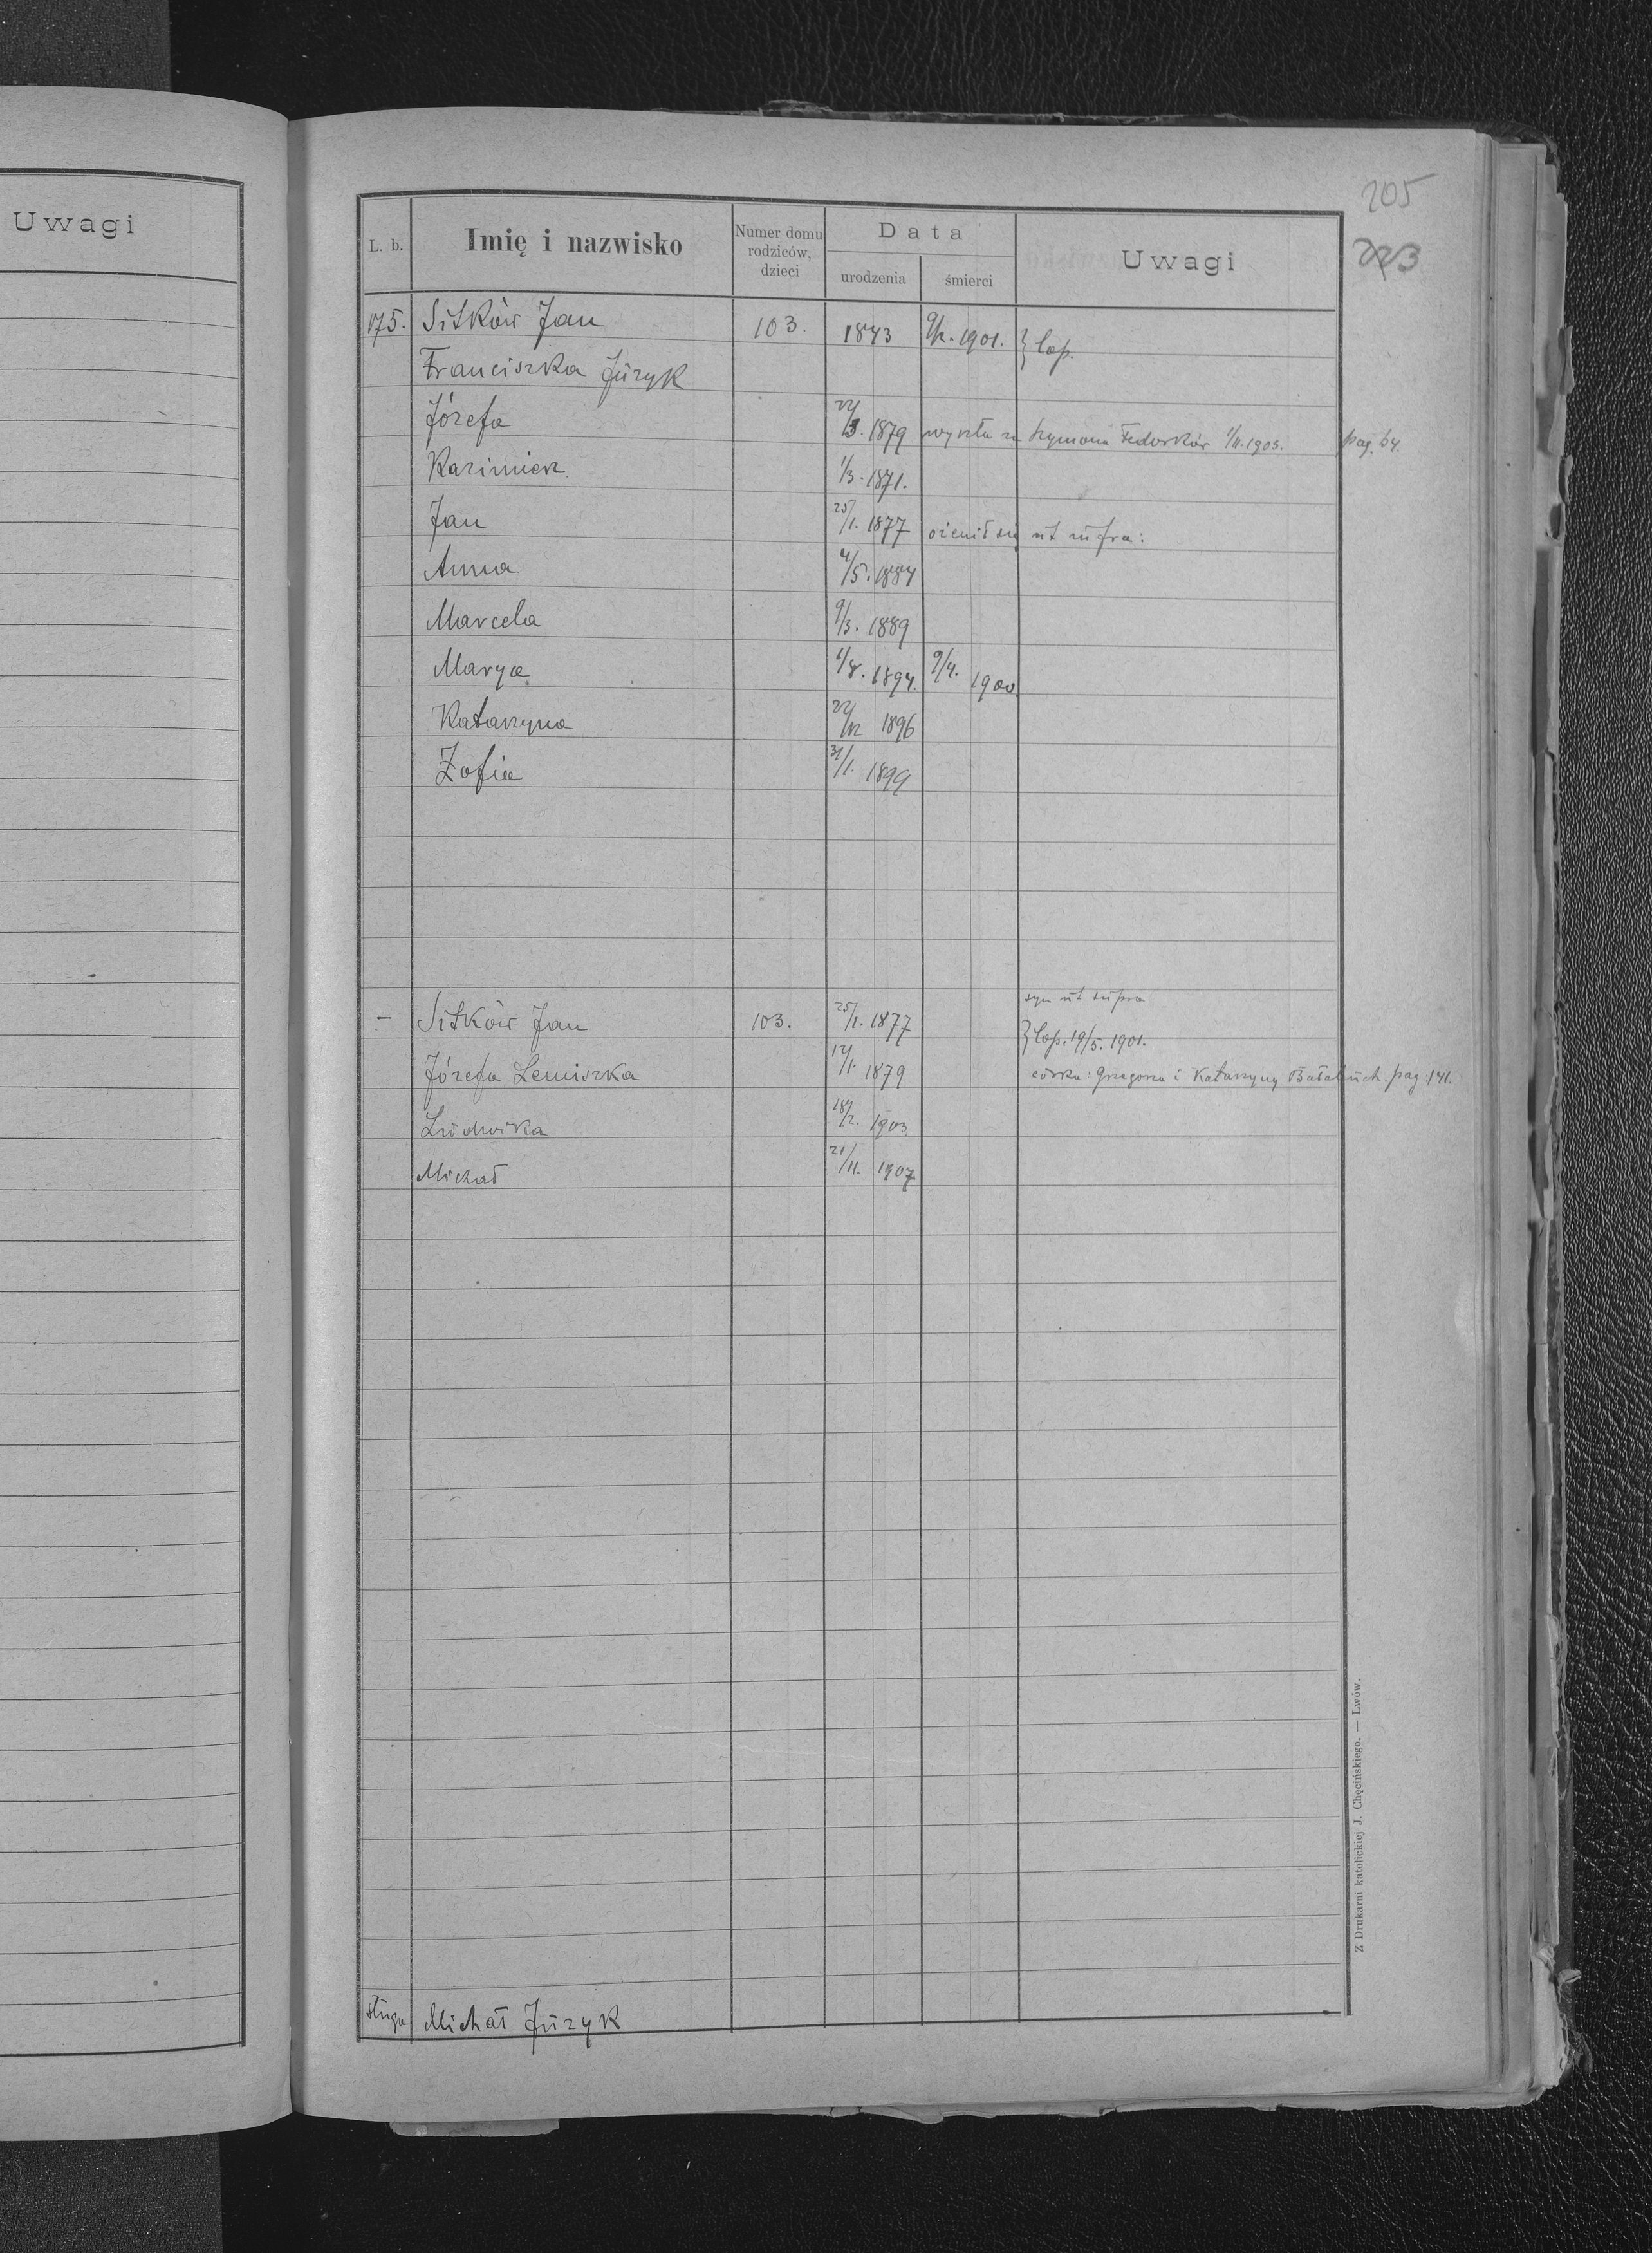 Uwagi
205
223
L. b. Imię i nazwisko Numer domu rodziców, dzieci Data urodzenia śmierci Uwagi
175. Sitków Jan 103. 1843 1901. } cop.
Franciszka Juzyk
Józefa 22/3. 1879 wyszła za Szymona Fedorków 1/11. 1903. pag. 64.
Kazimierz 1/3. 1871.
Jan 25/1. 1877 ożenił się ut infra:
Anna 4/5. 1884
Marcela 9/3. 1889
Marya 1/8. 1894. 9/4. 1900.
Katarzyna 22/12 1896
Zofia 31/1. 1899
syn ut supra
– Sitków Jan 103. 25/1. 1877 } cop. 19/5. 1901.
Józefa Lemiszka 12/1. 1879 córka: Grzegorza i Katarzyny Bałabuch. pag. 141.
Ludwika 18/2. 1903
Michał 21/11. 1907
sługa Michał Juzyk
Z Drukarni katolickiej J. Chęcińskiego. — Lwów.